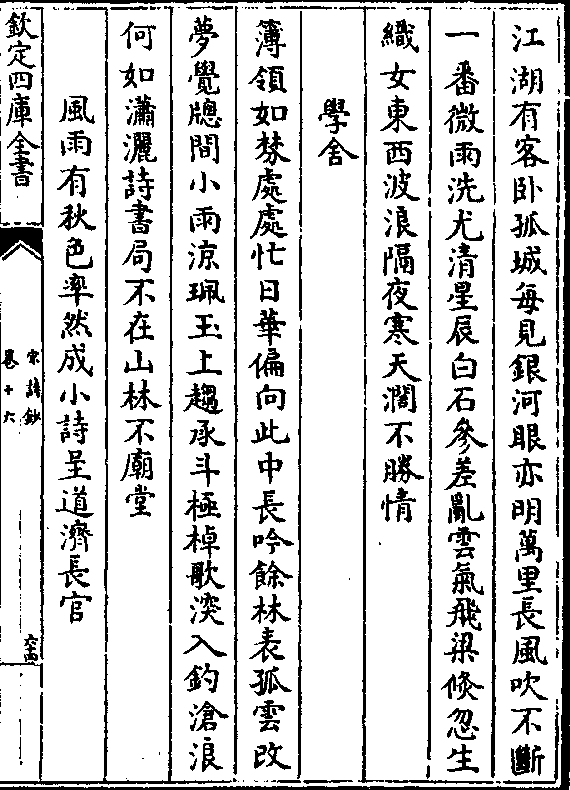 江湖有客卧孤城每見銀河眼亦明萬里長風吹不斷
一番微雨洗尤清星辰白石參差亂雲氣飛梁倐忽生
織女東西波浪隔夜寒天濶不勝情
學舍
簿領如棼處處忙日華偏向此中長吟餘林表孤雲改
夢覺牕間小雨涼珮玉上趨承斗極棹歌深入釣滄浪
何如瀟灑詩書局不在山林不廟堂
風雨有秋色率然成小詩呈道濟長官
欽定四庫全書
宋詩鈔
卷十六